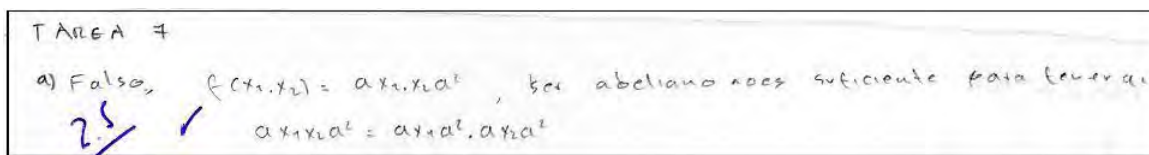 TAREA 7
a) Falso, f(x₁.x₂) = ax₁.x₂a², ser abeliano no es suficiente para tener
ax₁x₂a² = ax₁a².ax₂a²
2.5 ✓